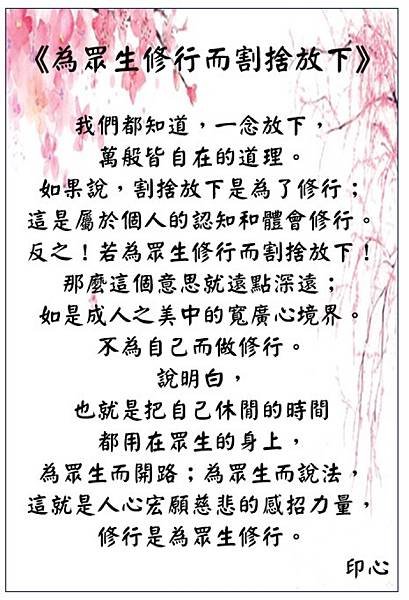 《為眾生修行而割捨放下》
我們都知道，一念放下，
萬般皆自在的道理。
如果說，割捨放下是為了修行；
這是屬於個人的認知和體會修行。
反之！若為眾生修行而割捨放下！
那麼這個意思就遠點深遠；
如是成人之美中的寬廣心境界。
不為自己而做修行。
說明白，
也就是把自己休閒的時間
都用在眾生的身上，
為眾生而開路；為眾生而說法，
這就是人心宏願慈悲的感招力量，
修行是為眾生修行。
印心